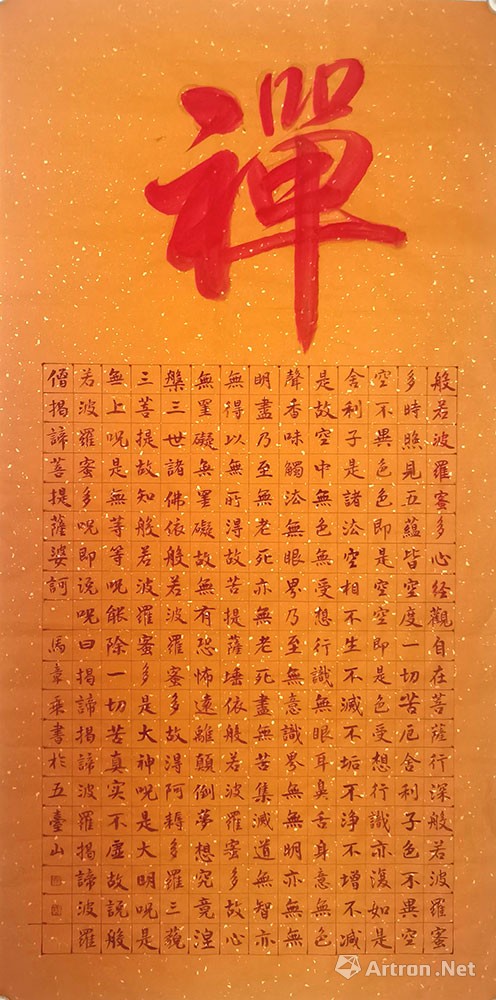 禪
般若波羅蜜多心经觀自在菩薩行深般若波羅蜜
多時照見五蘊皆空度一切苦厄舍利子色不異空
空不異色色即是空空即是色受想行識亦復如是
舍利子是諸法空相不生不滅不垢不净不增不減
是故空中無色無受想行識無眼耳鼻舌身意無色
聲香味觸法無眼界乃至無意識界無無明亦無無
明盡乃至無老死亦無老死盡無苦集滅道無智亦
無得以無所得故苦提薩埵依般若波羅蜜多故心
無罣礙無罣礙故無有恐怖遠離顛倒夢想究竟涅
槃三世諸佛依般若波羅蜜多故得阿耨多羅三藐
三菩提故知般若波羅蜜多是大神呪是大明呪是
無上呪是無等等呪能除一切苦真实不虚故説般
若波羅蜜多呪即说呪曰揭諦揭諦波羅揭諦波羅
僧揭諦菩提薩婆訶 馬章乘書於五臺山
Artron.Net